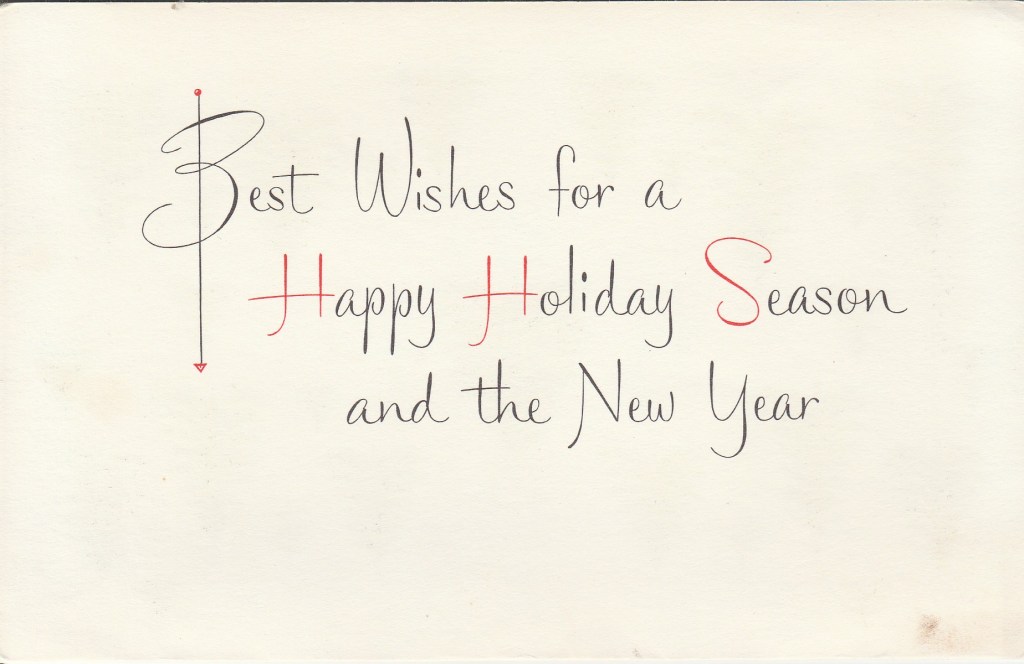 Best Wishes for a
Happy Holiday Season
and the New Year